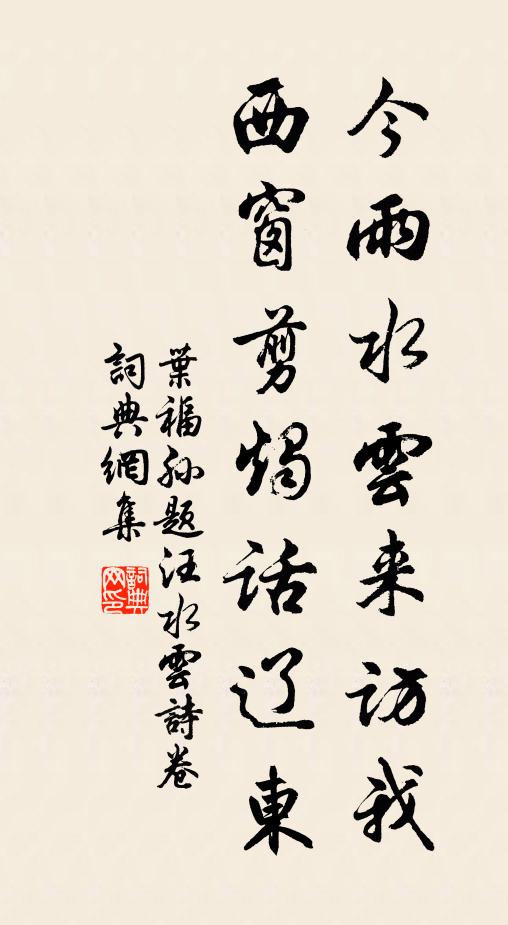 今雨水雲来訪我
西窗剪燭話辽東
葉福孫題汪水雲詩卷
詞典網集
詞典网印